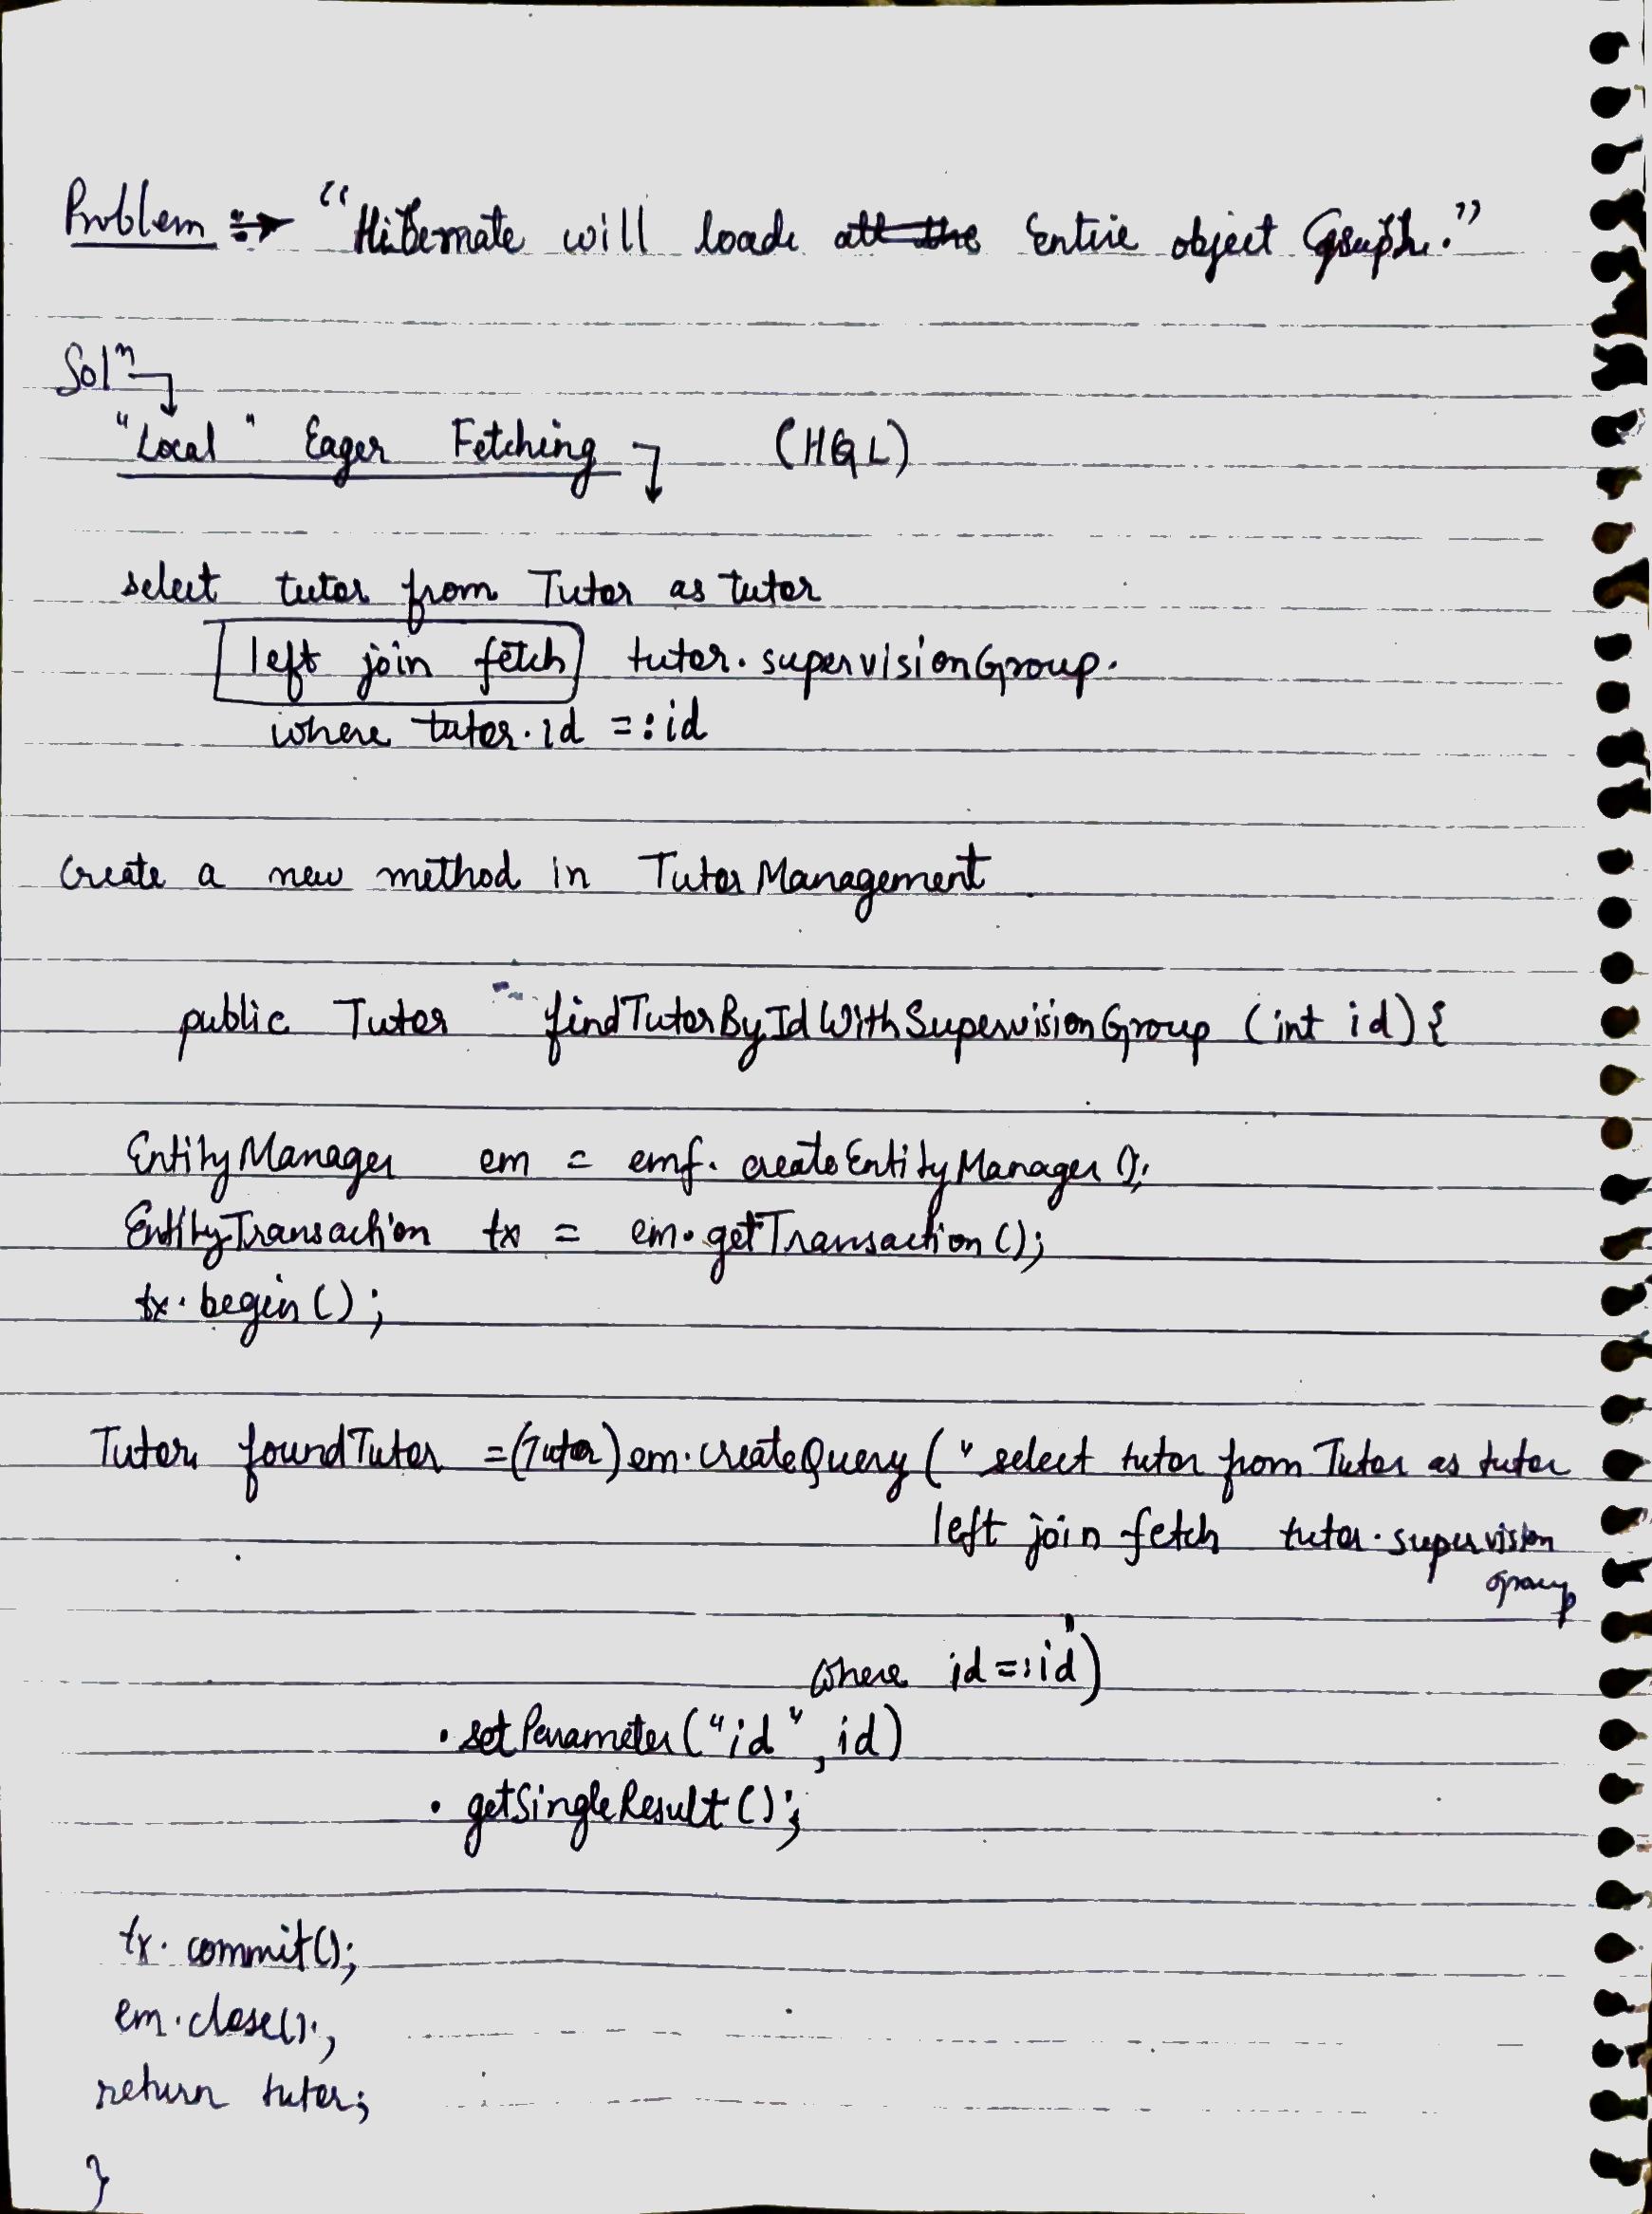 Problem ⇒ "Hibernate will loade all the Entire object Graph."
Solⁿ
"Local" Eager Fetching (HQL)
select tutor from Tutor as tutor
left join fetch tutor.supervisionGroup.
where tutor.id =:id
Create a new method in TutorManagement
public Tutor findTutorByIdWithSupervisionGroup (int id){
EntityManager em = emf.createEntityManager();
EntityTransaction tx = em.getTransaction();
tx.begin();
Tutor foundTutor =(Tutor)em.createQuery("select tutor from Tutor as tutor
left join fetch tutor.supervision
group
where id =:id")
.setParameter("id", id)
.getSingleResult();
tx.commit();
em.close();
return tutor;
}